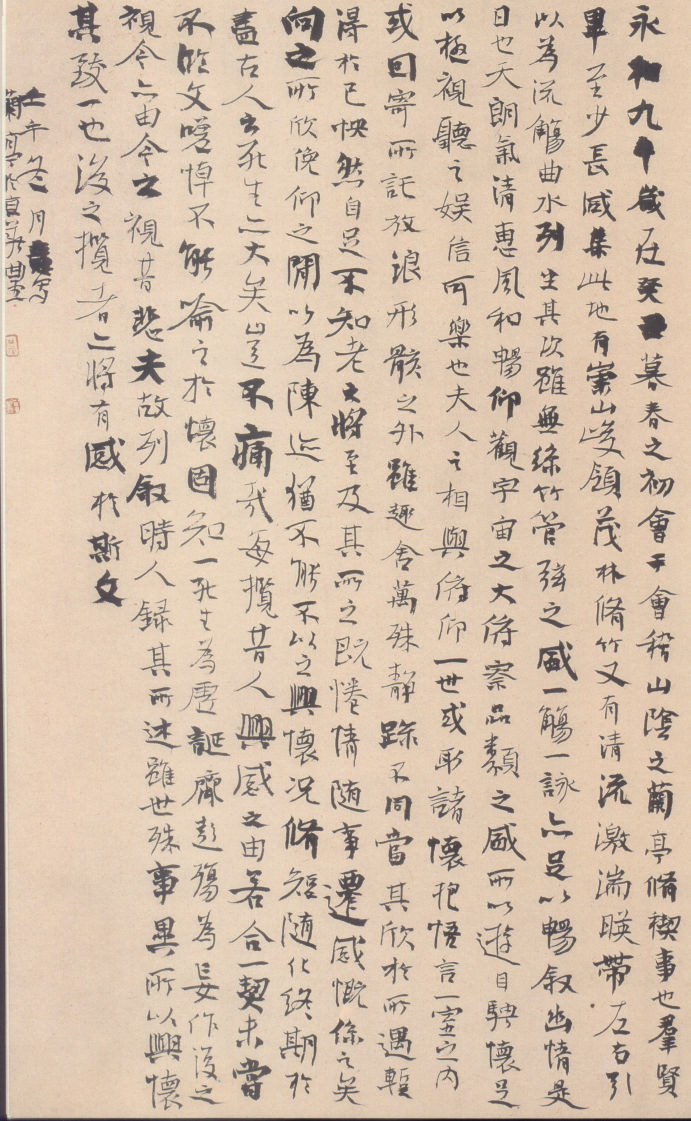 永和九年歲在癸丑暮春之初會于會稽山陰之蘭亭脩禊事也羣賢
畢至少長咸集此地有崇山峻領茂林脩竹又有清流激湍暎帶左右引
以為流觴曲水列坐其次雖無絲竹管弦之盛一觴一詠亦足以暢敘幽情是
日也天朗氣清惠風和暢仰觀宇宙之大俯察品類之盛所以遊目騁懷足
以極視聽之娛信可樂也夫人之相與俯仰一世或取諸懷抱悟言一室之內
或因寄所託放浪形骸之外雖趣舍萬殊靜躁不同當其欣於所遇暫
得於己怏然自足不知老之將至及其所之既惓情隨事遷感慨係之矣
向之所欣俛仰之閒以為陳迹猶不能不以之興懷況脩短隨化終期於
盡古人云死生亦大矣豈不痛哉每攬昔人興感之由若合一契未嘗
不臨文嗟悼不能喻之於懷固知一死生為虛誕齊彭殤為妄作後之
視今亦由今之視昔悲夫故列敘時人錄其所述雖世殊事異所以興懷
其致一也後之攬者亦將有感於斯文
壬午冬月寫
蘭亭於